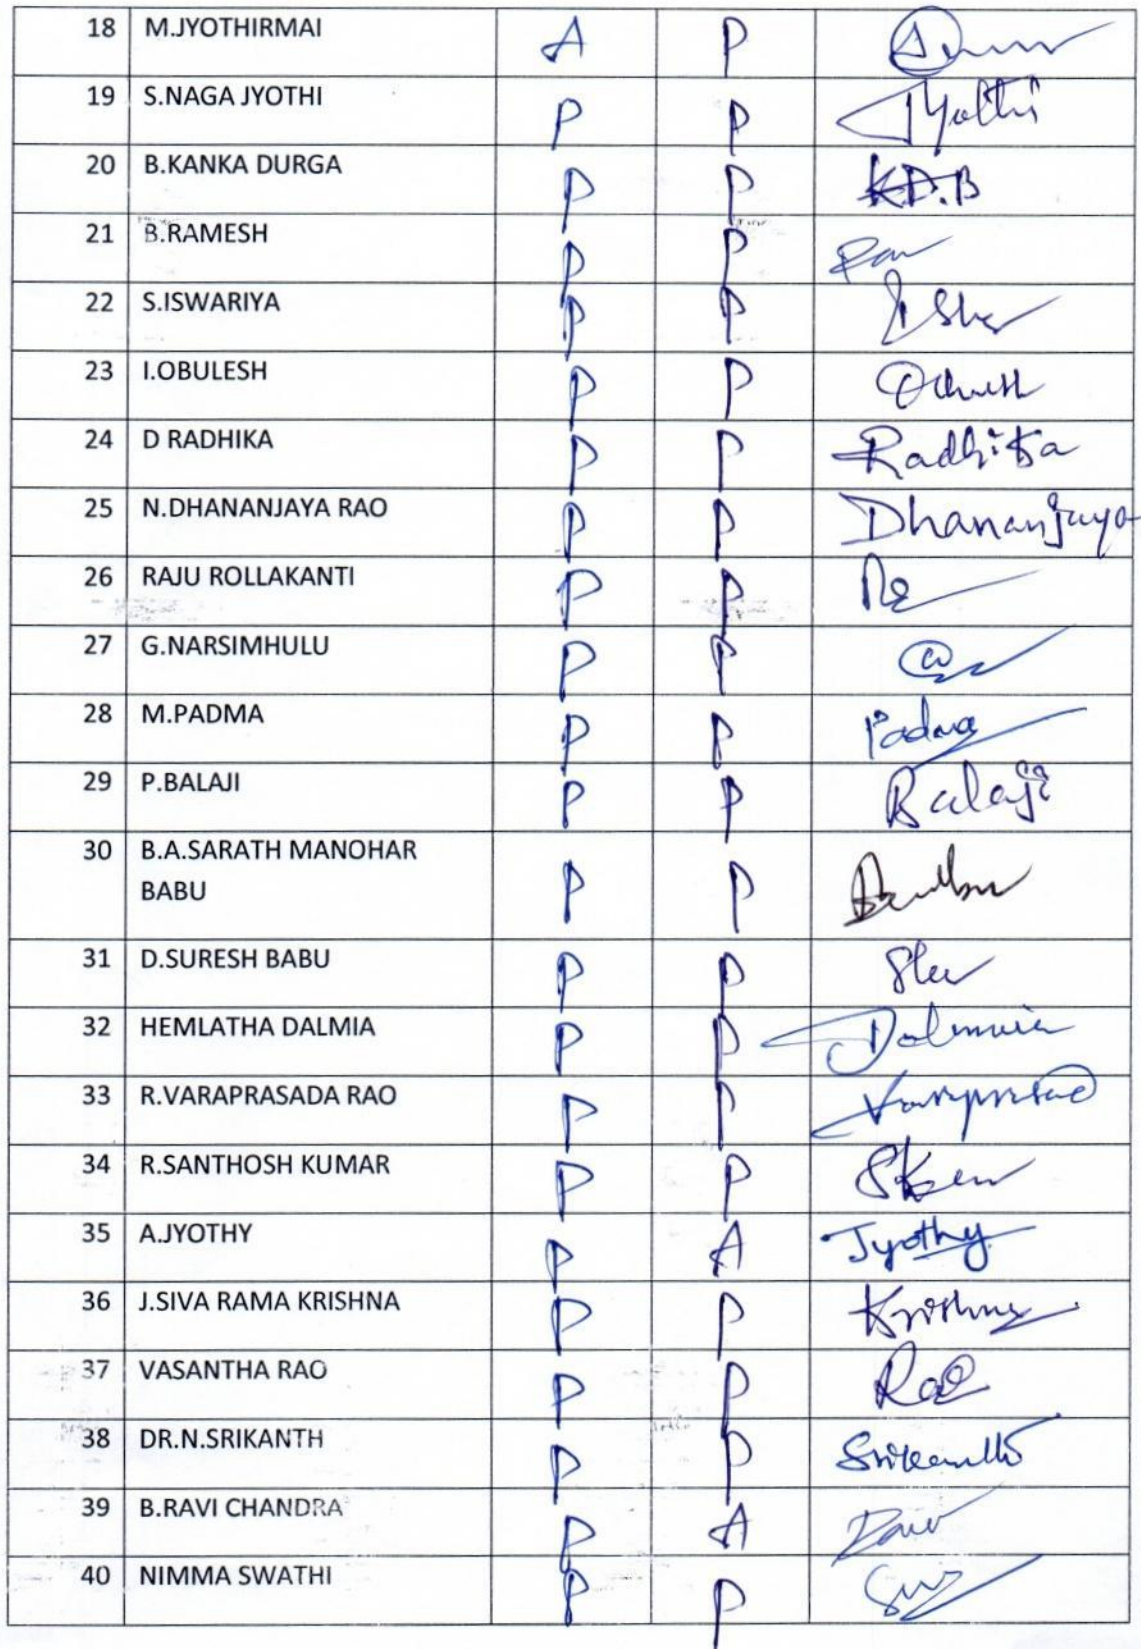 18 M.JYOTHIRMAI A P
19 S.NAGA JYOTHI P P Jyothi
20 B.KANKA DURGA P P KD.B
21 B.RAMESH P P
22 S.ISWARIYA P P
23 I.OBULESH P P
24 D RADHIKA P P Radhika
25 N.DHANANJAYA RAO P P Dhananjaya
26 RAJU ROLLAKANTI P P
27 G.NARSIMHULU P P
28 M.PADMA P P Padma
29 P.BALAJI P P Balaji
30 B.A.SARATH MANOHAR
BABU P P
31 D.SURESH BABU P P
32 HEMLATHA DALMIA P P Dalmia
33 R.VARAPRASADA RAO P P Varaprasad
34 R.SANTHOSH KUMAR P P
35 A.JYOTHY P A Jyothy
36 J.SIVA RAMA KRISHNA P P Krishna
37 VASANTHA RAO P P Rao
38 DR.N.SRIKANTH P P Srikanth
39 B.RAVI CHANDRA P A
40 NIMMA SWATHI P P